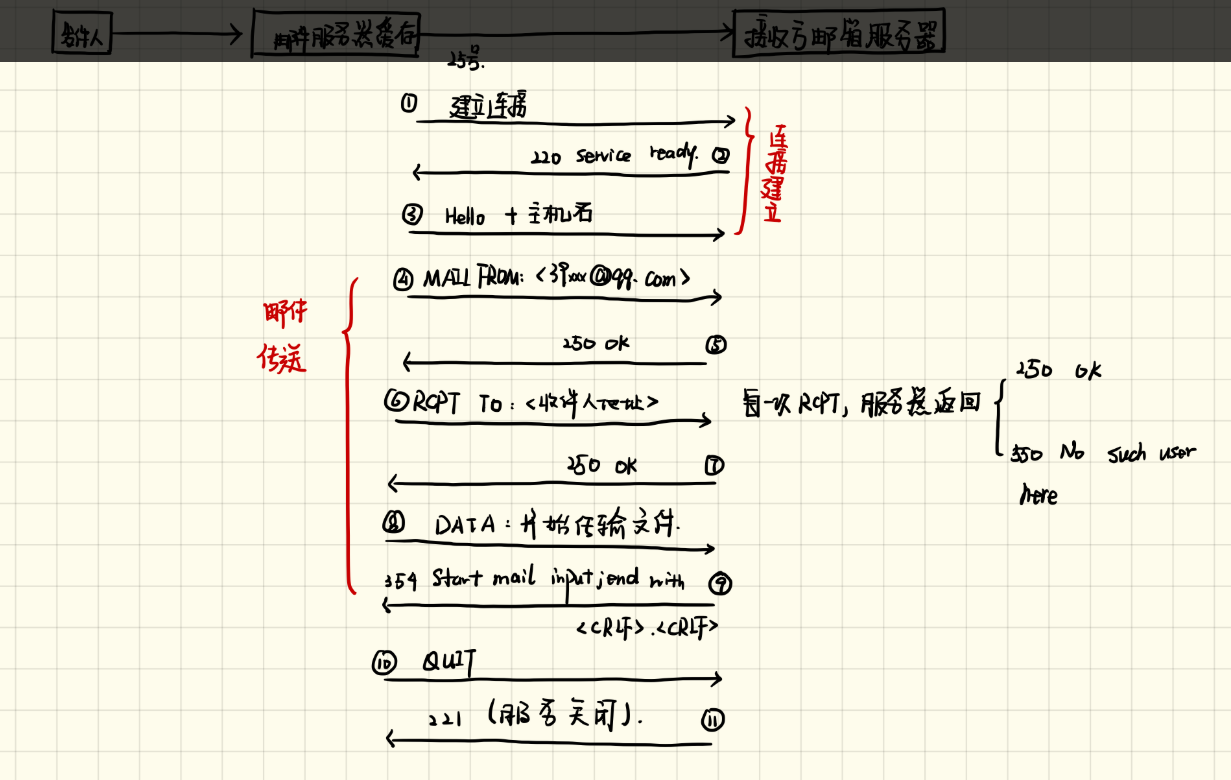 发件人
邮件服务器缓存
接收方邮箱服务器
25号.
① 建立连接
220 service ready. ②
③ Hello + 主机名
连接建立
④ MAIL FROM: <39xxx@qq.com>
邮件
传送
250 OK ⑤
⑥ RCPT TO: <收件人地址>
每一次RCPT, 服务器返回
250 OK
550 No such user
here
250 OK ⑦
⑧ DATA: 开始传输文件.
354 Start mail input;end with ⑨
<CRLF>.<CRLF>
⑩ QUIT
221 (服务关闭). ⑪